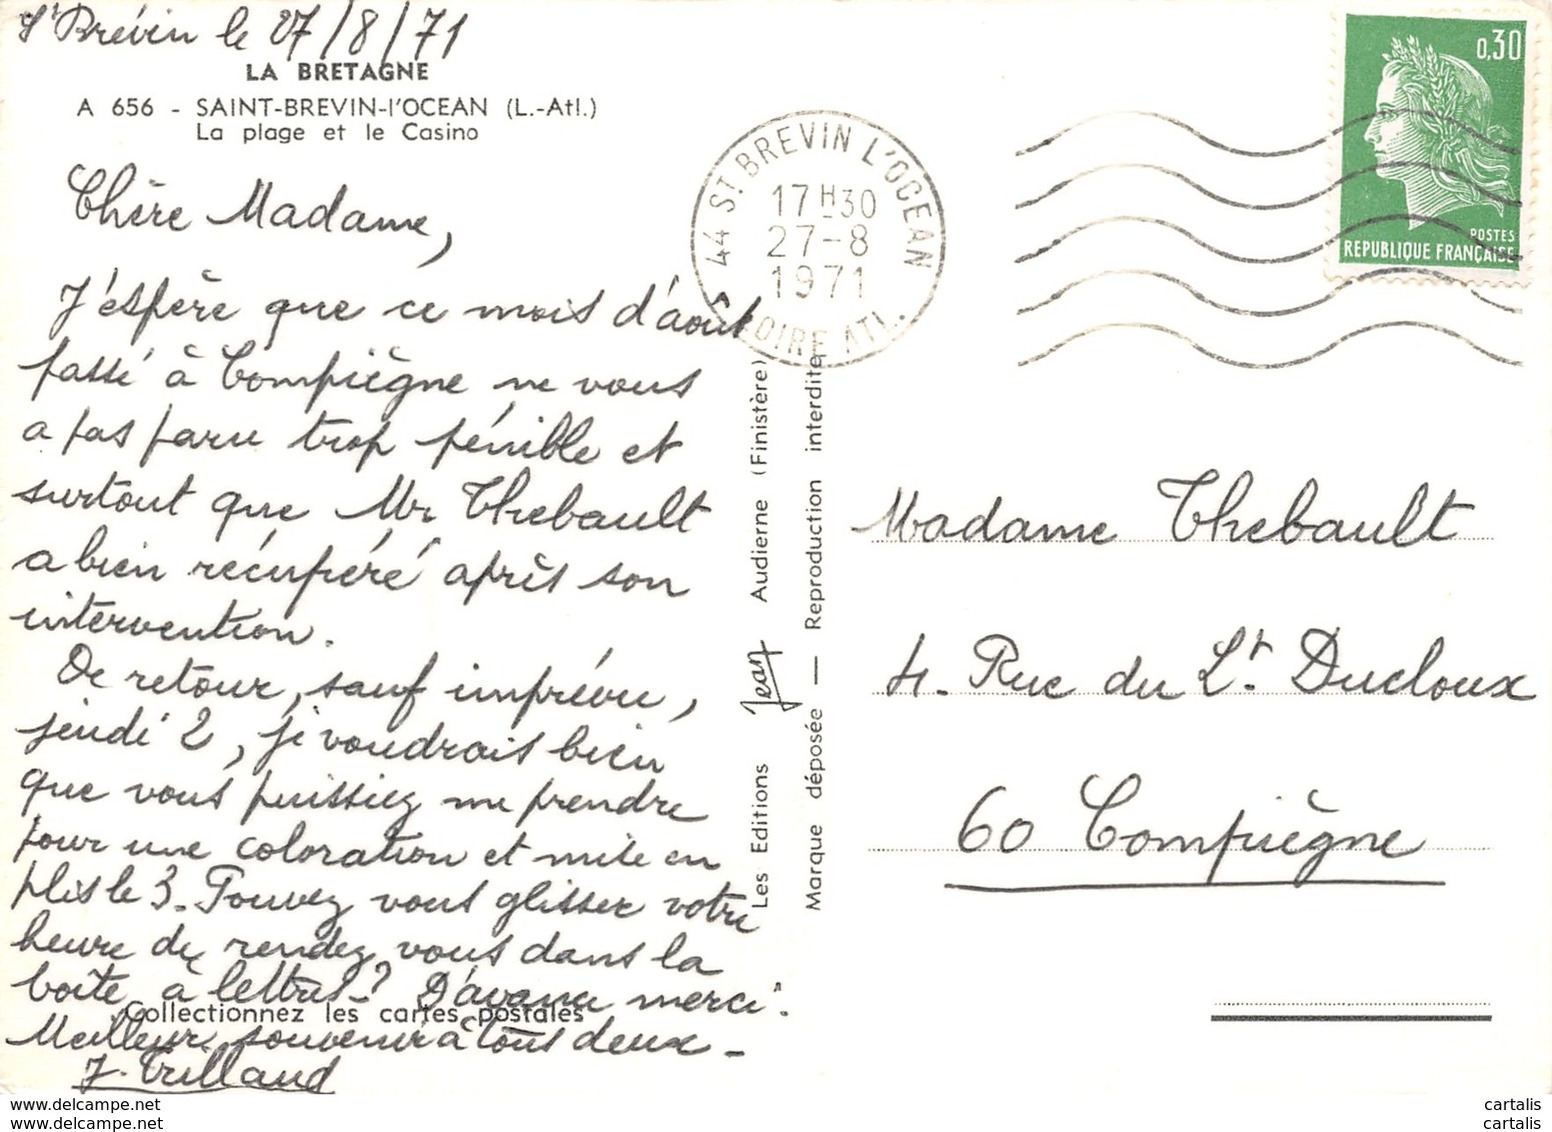 St Brévin le 27/8/71
LA BRETAGNE
A 656 - SAINT-BREVIN-l'OCEAN (L.-Atl.)
La plage et le Casino
Chère Madame,
J'espère que ce mois d'août
passé à Compiègne ne vous
a pas paru trop pénible et
surtout que Mr Thebault
a bien récupéré après son
intervention.
De retour, sauf imprévu,
jeudi 2, je voudrais bien
que vous puissiez me prendre
pour une coloration et mise en
plis le 3. Pouvez vous glisser votre
heure de rendez vous dans la
boîte à lettres? D'avance merci.
Collectionnez les cartes postales
Meilleur souvenir à tous deux -
J. Trillaud
Les Editions Jean Audierne (Finistère)
Marque déposée — Reproduction interdite
44 ST BREVIN L'OCEAN
17 H30
27-8
1971
LOIRE ATL.
0,30
POSTES
REPUBLIQUE FRANÇAISE
Madame Thebault
4. Rue du Lt. Ducloux
60 Compiègne
cartalis
www.delcampe.net
cartalis
cartalis